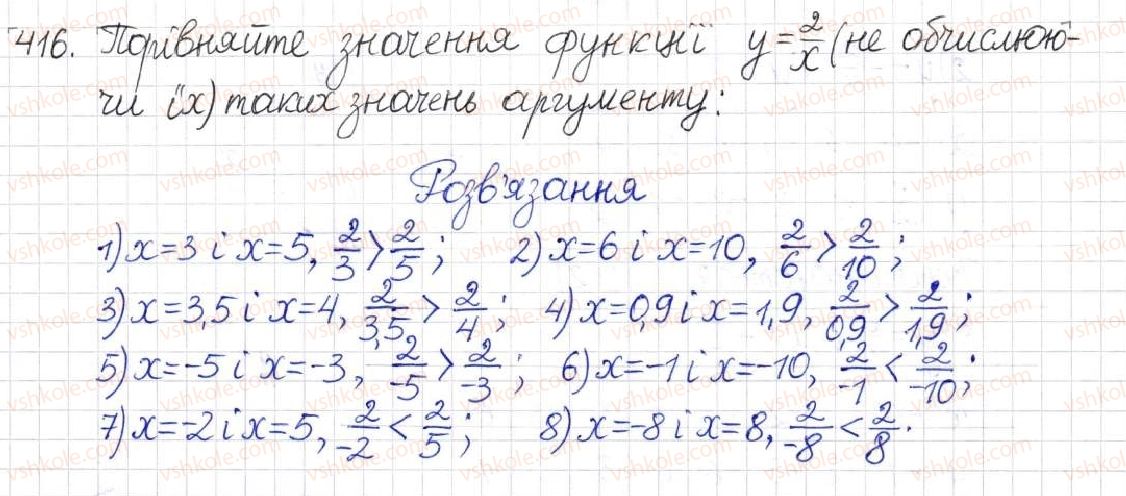 416. Порівняйте значення функції y=2/x (не обчислюю-
чи їх) таких значень аргументу:
Розв'язання
1) x=3 і x=5, 2/3 > 2/5; 2) x=6 і x=10, 2/6 > 2/10;
3) x=3,5 і x=4, 2/3,5 > 2/4; 4) x=0,9 і x=1,9, 2/0,9 > 2/1,9;
5) x=-5 і x=-3, 2/-5 > 2/-3; 6) x=-1 і x=-10, 2/-1 < 2/-10;
7) x=-2 і x=5, 2/-2 < 2/5; 8) x=-8 і x=8, 2/-8 < 2/8.
vshkole.com